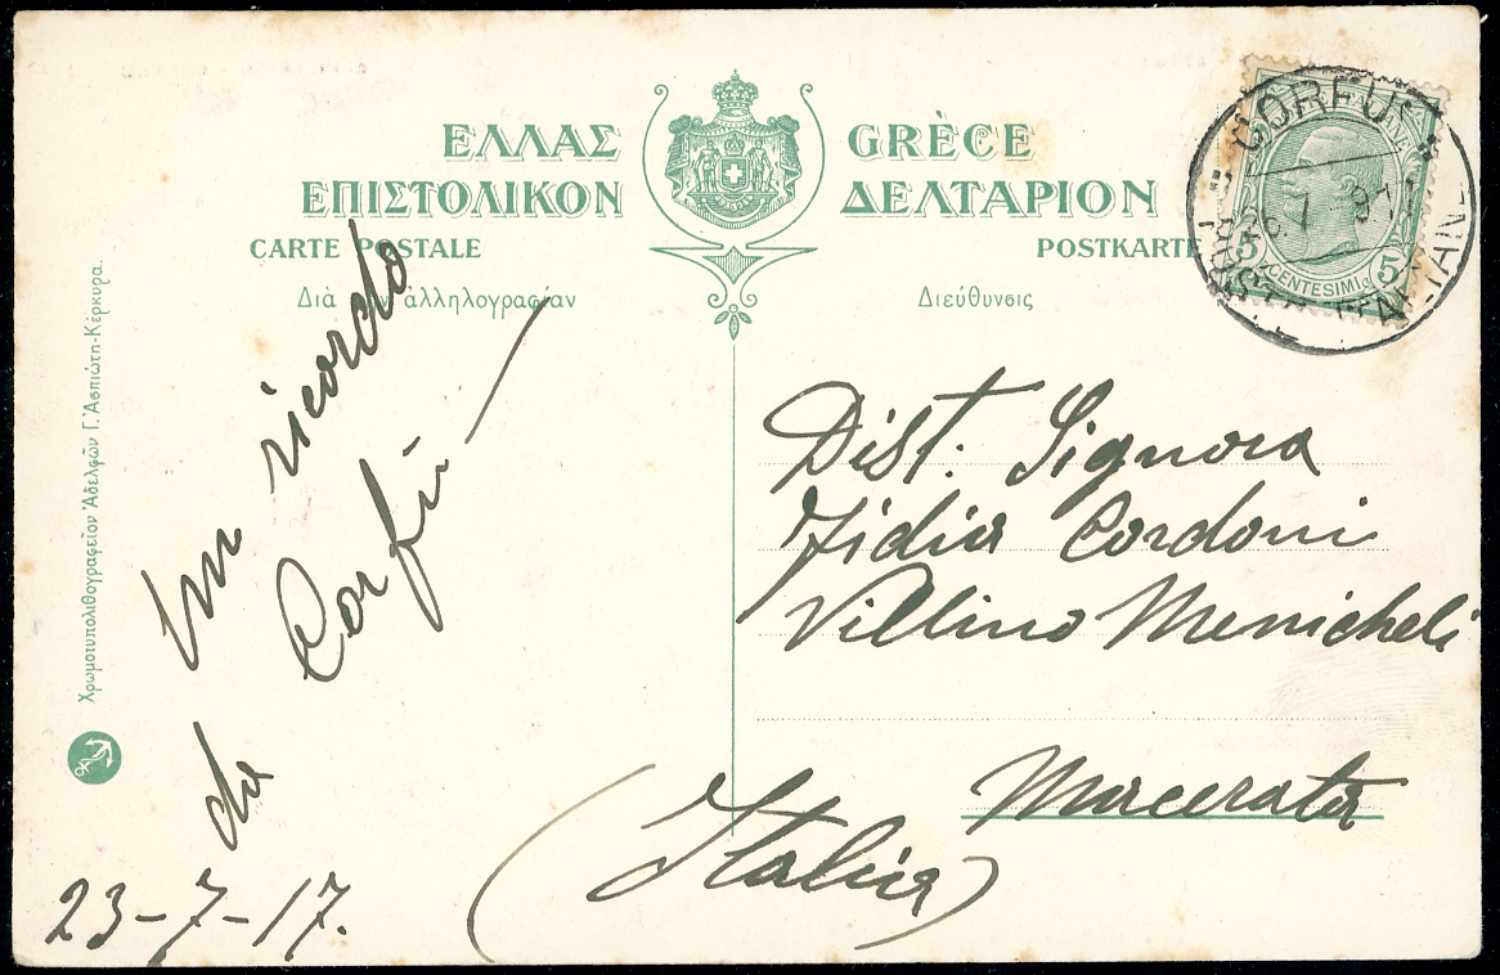 ΕΛΛΑΣ GRÈCE
ΕΠΙΣΤΟΛΙΚΟΝ ΔΕΛΤΑΡΙΟΝ
CARTE POSTALE POSTKARTE
Διὰ τὴν ἀλληλογραφίαν Διεύθυνσις
Χρωμοτυπολιθογραφεῖον Ἀδελφῶν Γ. Ἀσπιώτη-Κέρκυρα.
CORFU
POSTE ITALIANE
26.7
5 CENTESIMI 5
Un ricordo
da Corfù
23-7-17.
Dist. Signora
Fidia Cordoni
Villino Menicheli
Macerata
(Italia)